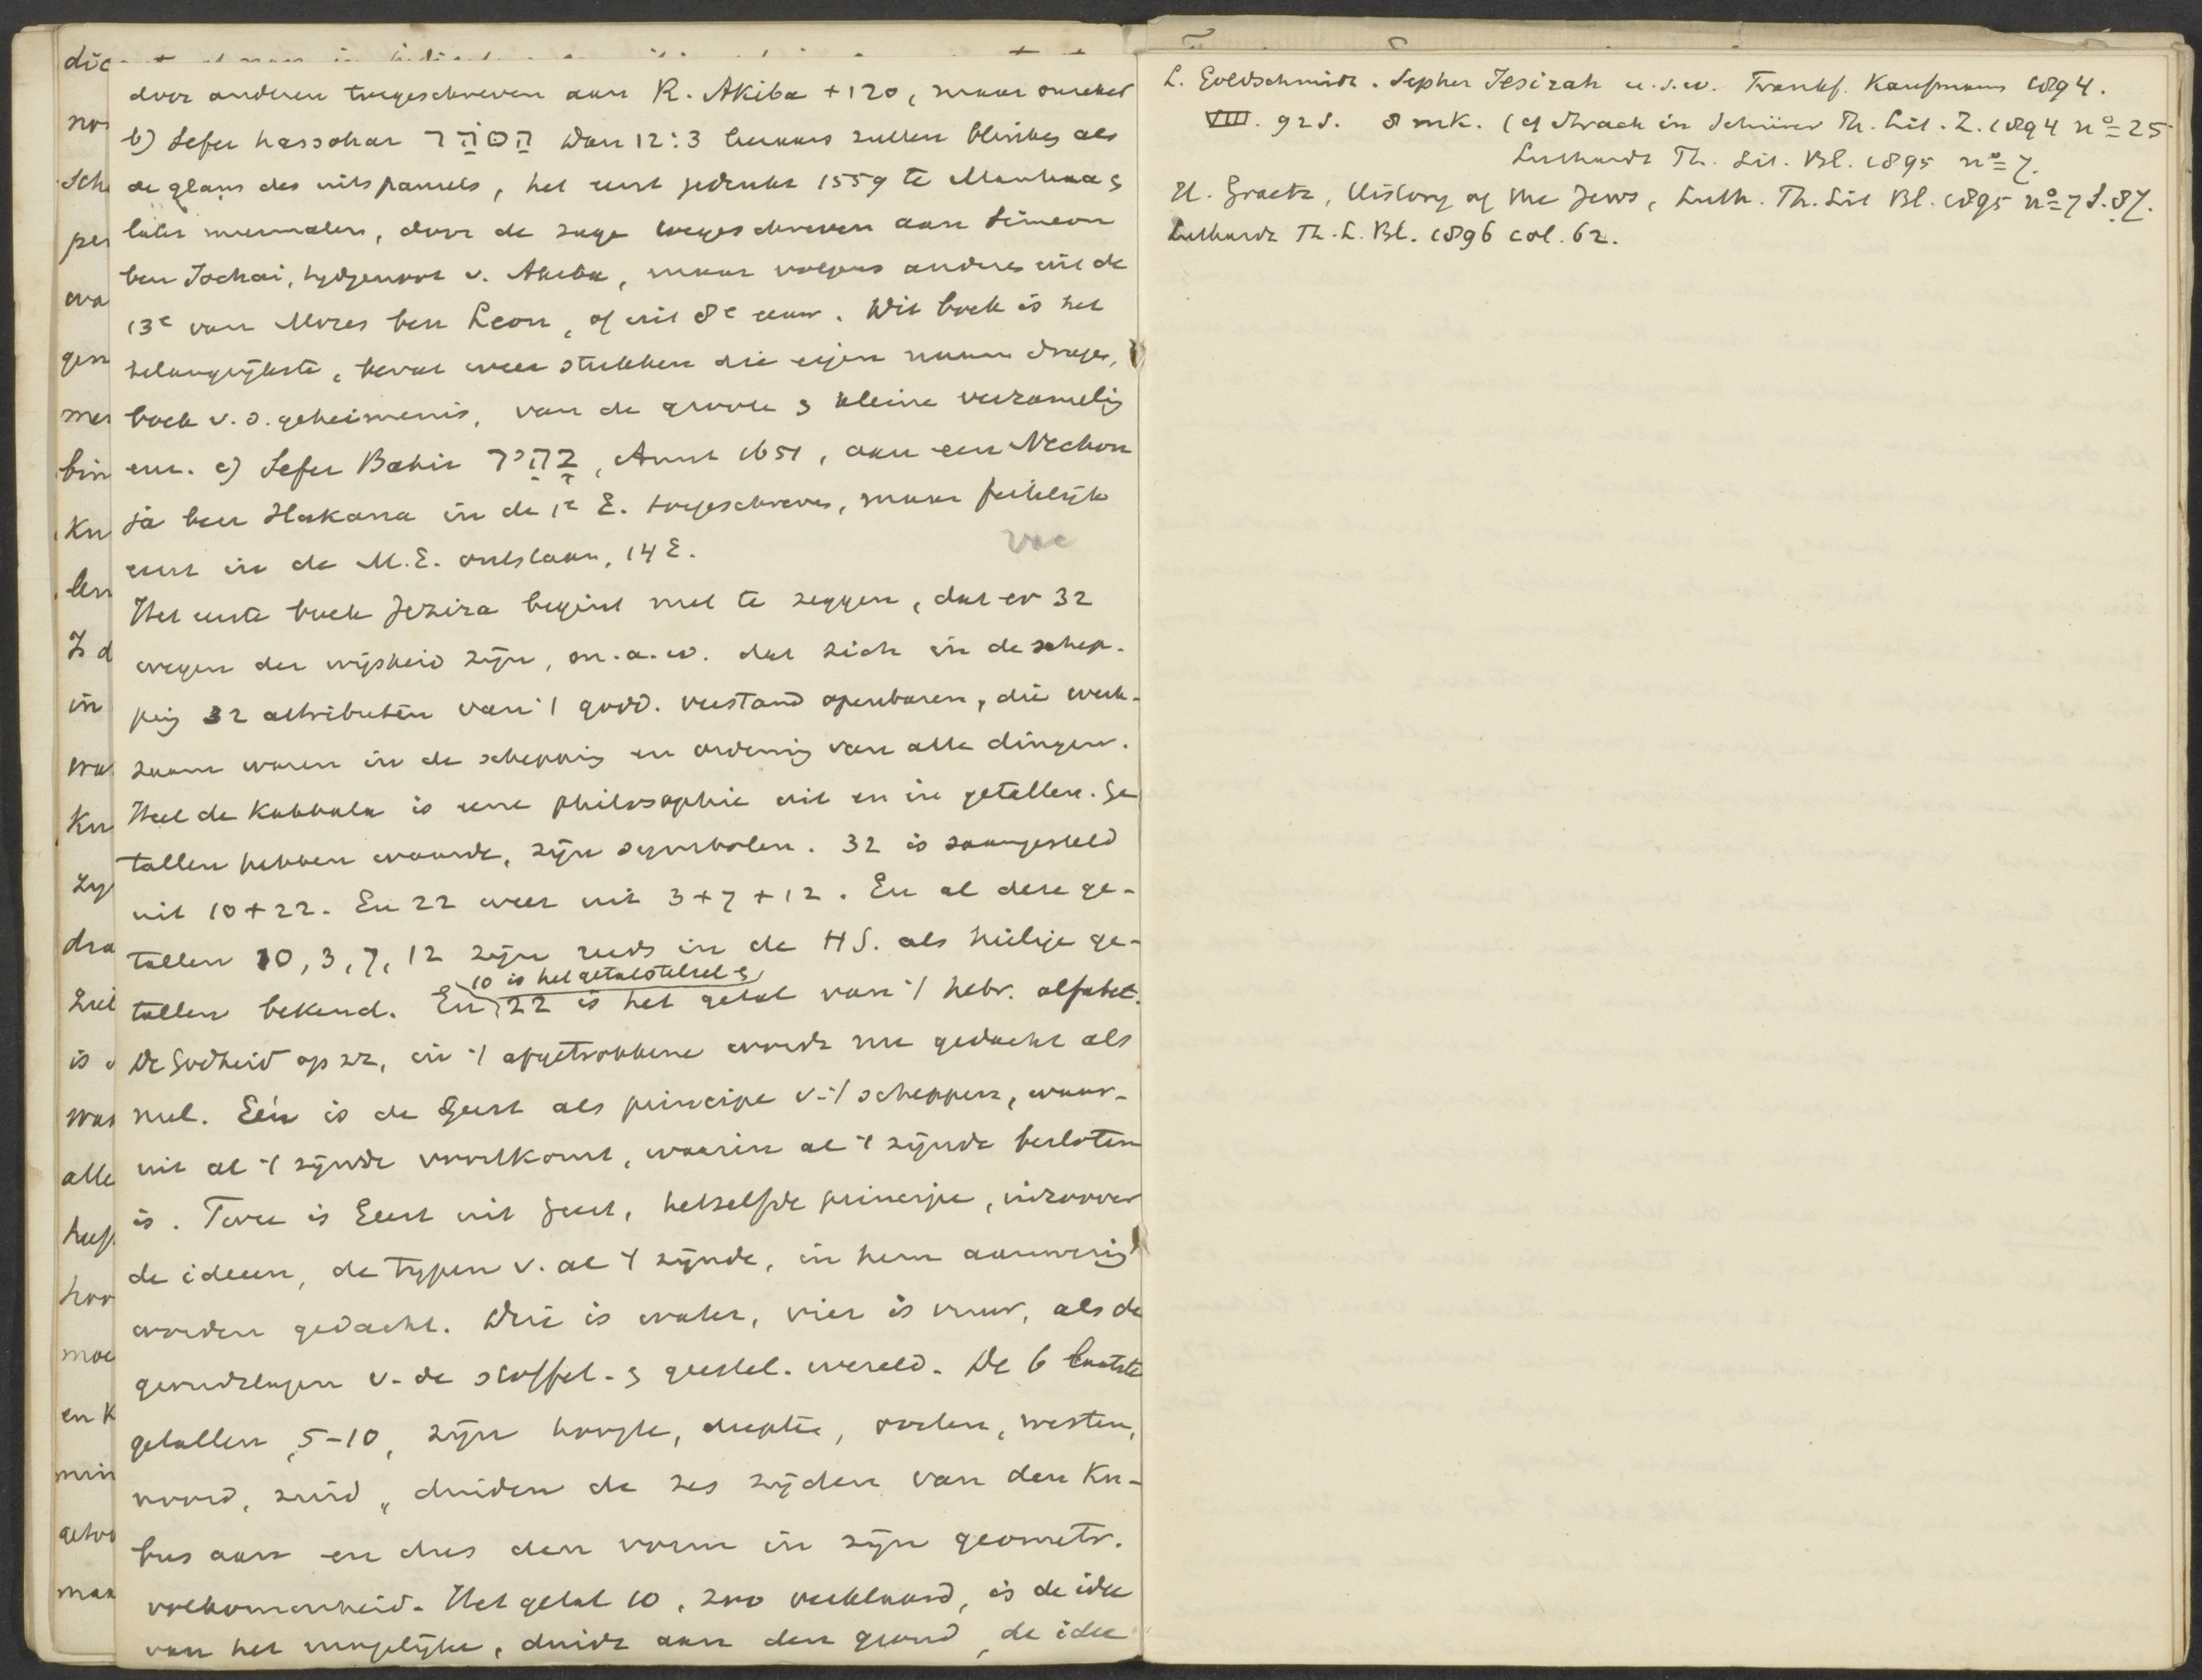 door anderen toegeschreven aan R. Akiba +120, maar onzeker
b) Sefer hassohar הזהר Dan 12:3 leeraars zullen blinken als
de glans des uitspansels, het eerst gedrukt 1559 te Mantua &
later meermalen, door de sage toegeschreven aan Simeon
ben Jochai, tydgenoot v. Akiba, maar volgens anderen uit de
13e van Mozes ben Leon, of uit 8e eeuw. Dit boek is het
belangrijkste, bevat weer stukken die eigen naam dragen,
boek v. d. geheimenis, van de groote & kleine verzameling
enz. c) Sefer Bahir בהיר, Amst 1651, aan een Nechon
ja ben Hakana in de 1e E. toegeschreven, maar feitelijk
eerst in de M.E. ontstaan, 14 E.
Het eerste boek Jezira begint met te zeggen, dat er 32
wegen der wijsheid zijn, m.a.w. dat zich in de schep-
ping 32 attributen van 't godd. verstand openbaren, die werk-
zaam waren in de schepping en ordening van alle dingen.
Heel de Kabbala is eene philosophie uit en in getallen. Ge
tallen hebben waarde, zijn symbolen. 32 is saamgesteld
uit 10+22. En 22 weer uit 3+7+12. En al deze ge-
tallen 10, 3, 7, 12 zijn reeds in de HS. als heilige ge-
10 is het getalstelsel &
tallen bekend. En 22 is het getal van 't hebr. alfabet.
De Godheid op zz, in 't afgetrokkene wordt nu gedacht als
nul. Eén is de Geest als principe v. 't scheppen, waar-
uit al 't zijnde voortkomt, waarin al 't zijnde besloten
is. Twee is Geest uit Geest, hetzelfde principe, inzoover
de ideeen, de typen v. al 't zijnde, in hem aanwezig
worden gedacht. Drie is water, vier is vuur, als de
grondslagen v. de stoffel. & geestel. wereld. De 6 laatste
getallen, 5-10, zijn hoogte, diepte, oosten, westen,
noord, zuid, duiden de zes zijden van den Ku-
bus aan en dus den vorm in zijn geometr.
volkomenheid. Het getal 10, zoo verklaard, is de idee
van het mogelijke, duidt aan den grond, de idee
L. Goldschmidt. Sepher Jesirah u.s.w. Frankf. Kaufmann 1894.
VIII. 92 S. 8 mk. (cf Strack in Schürer Th. Lit. Z. 1894 no 25
Luthardt Th. Lit. Bl. 1895 no 7.
H. Graetz, History of the Jews, Luth. Th. Lit Bl. 1895 no 7 S. 87.
Luthardt Th. L. Bl. 1896 col. 62.